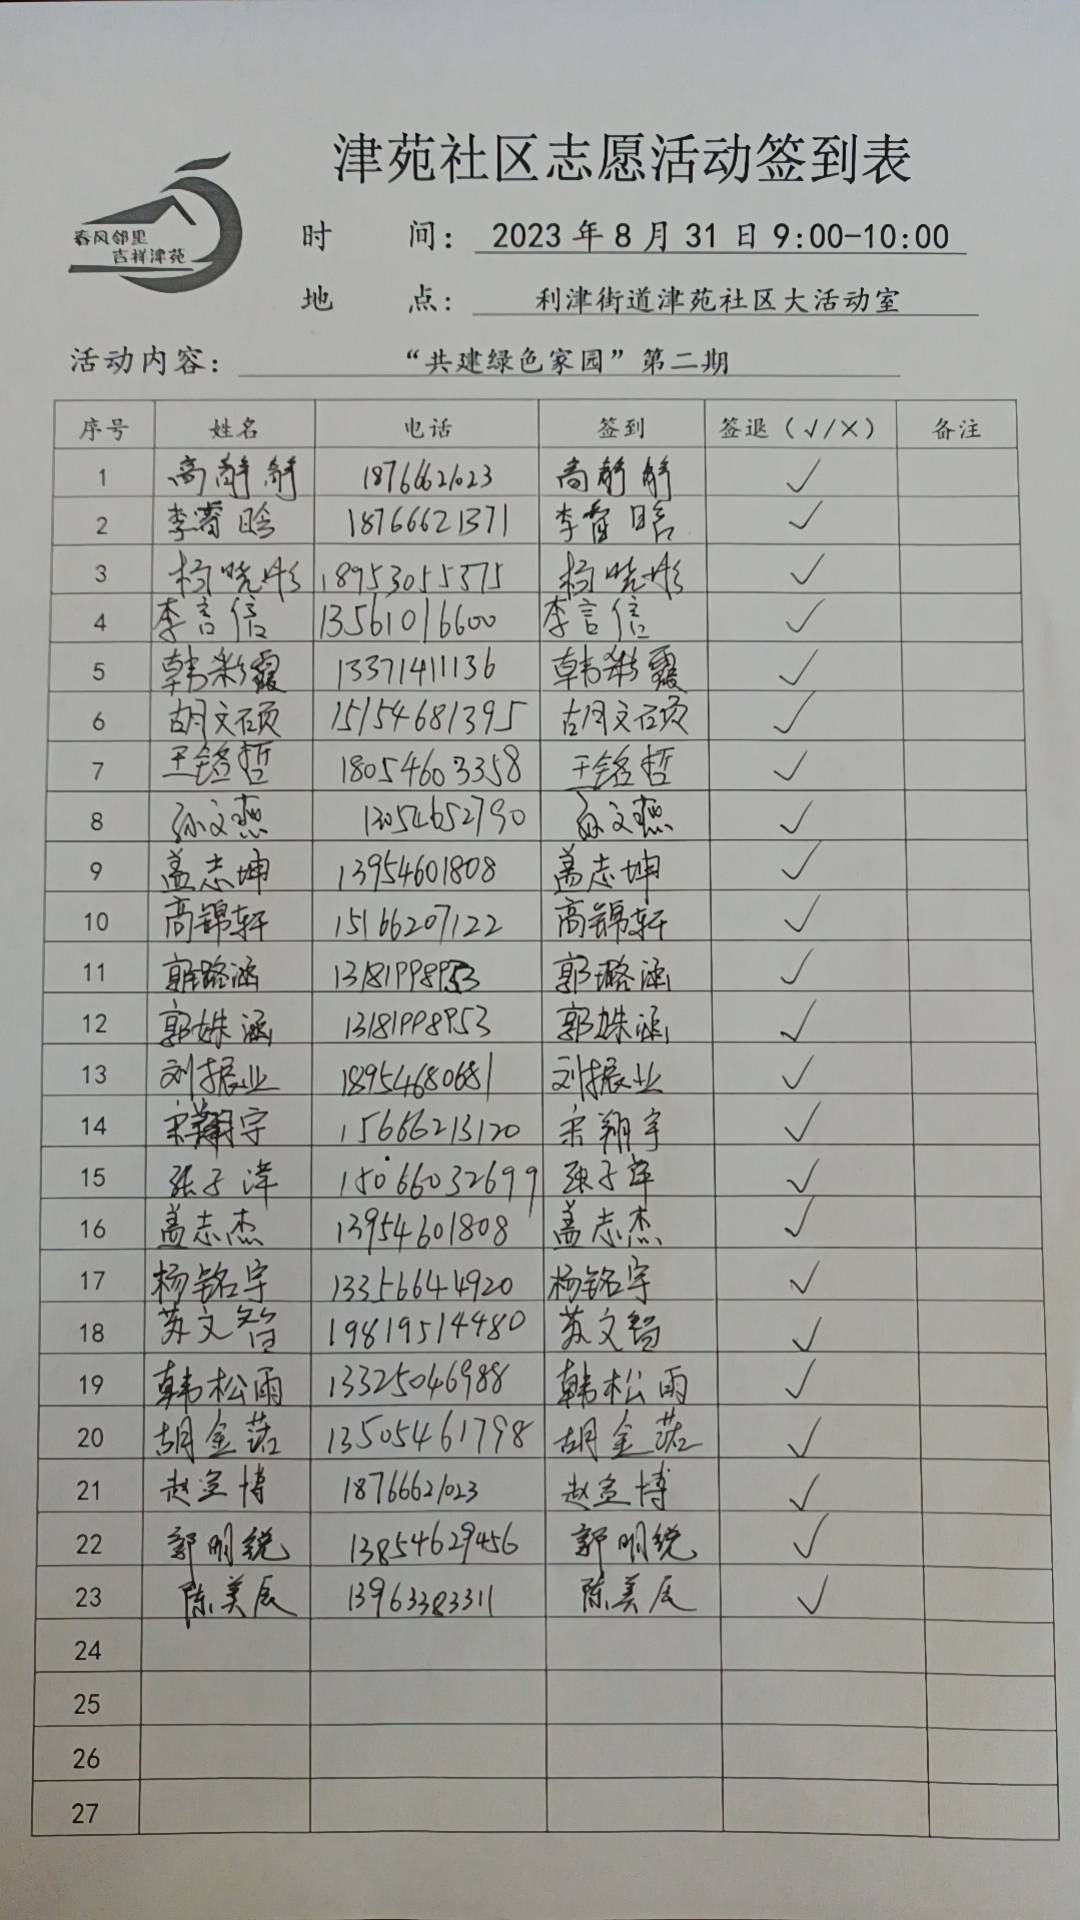 津苑社区志愿活动签到表
春风邻里
吉祥津苑
时 间： 2023 年 8 月 31 日 9:00-10:00
地 点： 利津街道津苑社区大活动室
活动内容： “共建绿色家园”第二期
序号 姓名 电话 签到 签退（√/×） 备注
1 高静静 18766621023 高静静 √
2 李睿晗 18766621371 李睿晗 √
3 杨晓彤 18953055375 杨晓彤 √
4 李言信 13561016600 李言信 √
5 韩彩霞 13371411136 韩彩霞 √
6 胡文硕 15154681395 胡文硕 √
7 王铭哲 18054603358 王铭哲 √
8 孙文燕 13054652790 孙文燕 √
9 盖志坤 13954601808 盖志坤 √
10 高锦轩 15166207122 高锦轩 √
11 郭璐涵 13181998953 郭璐涵 √
12 郭姝涵 13181998953 郭姝涵 √
13 刘振业 18954680681 刘振业 √
14 宋翔宇 15666213120 宋翔宇 √
15 张子 15066032699 张子 √
16 盖志杰 13954601808 盖志杰 √
17 杨铭宇 13356644920 杨铭宇 √
18 苏文智 19819514480 苏文智 √
19 韩松雨 13325046988 韩松雨 √
20 胡金诺 13505461798 胡金诺 √
21 赵立博 18766621023 赵立博 √
22 郭明锐 13854629456 郭明锐 √
23 陈美辰 13963383311 陈美辰 √
24
25
26
27